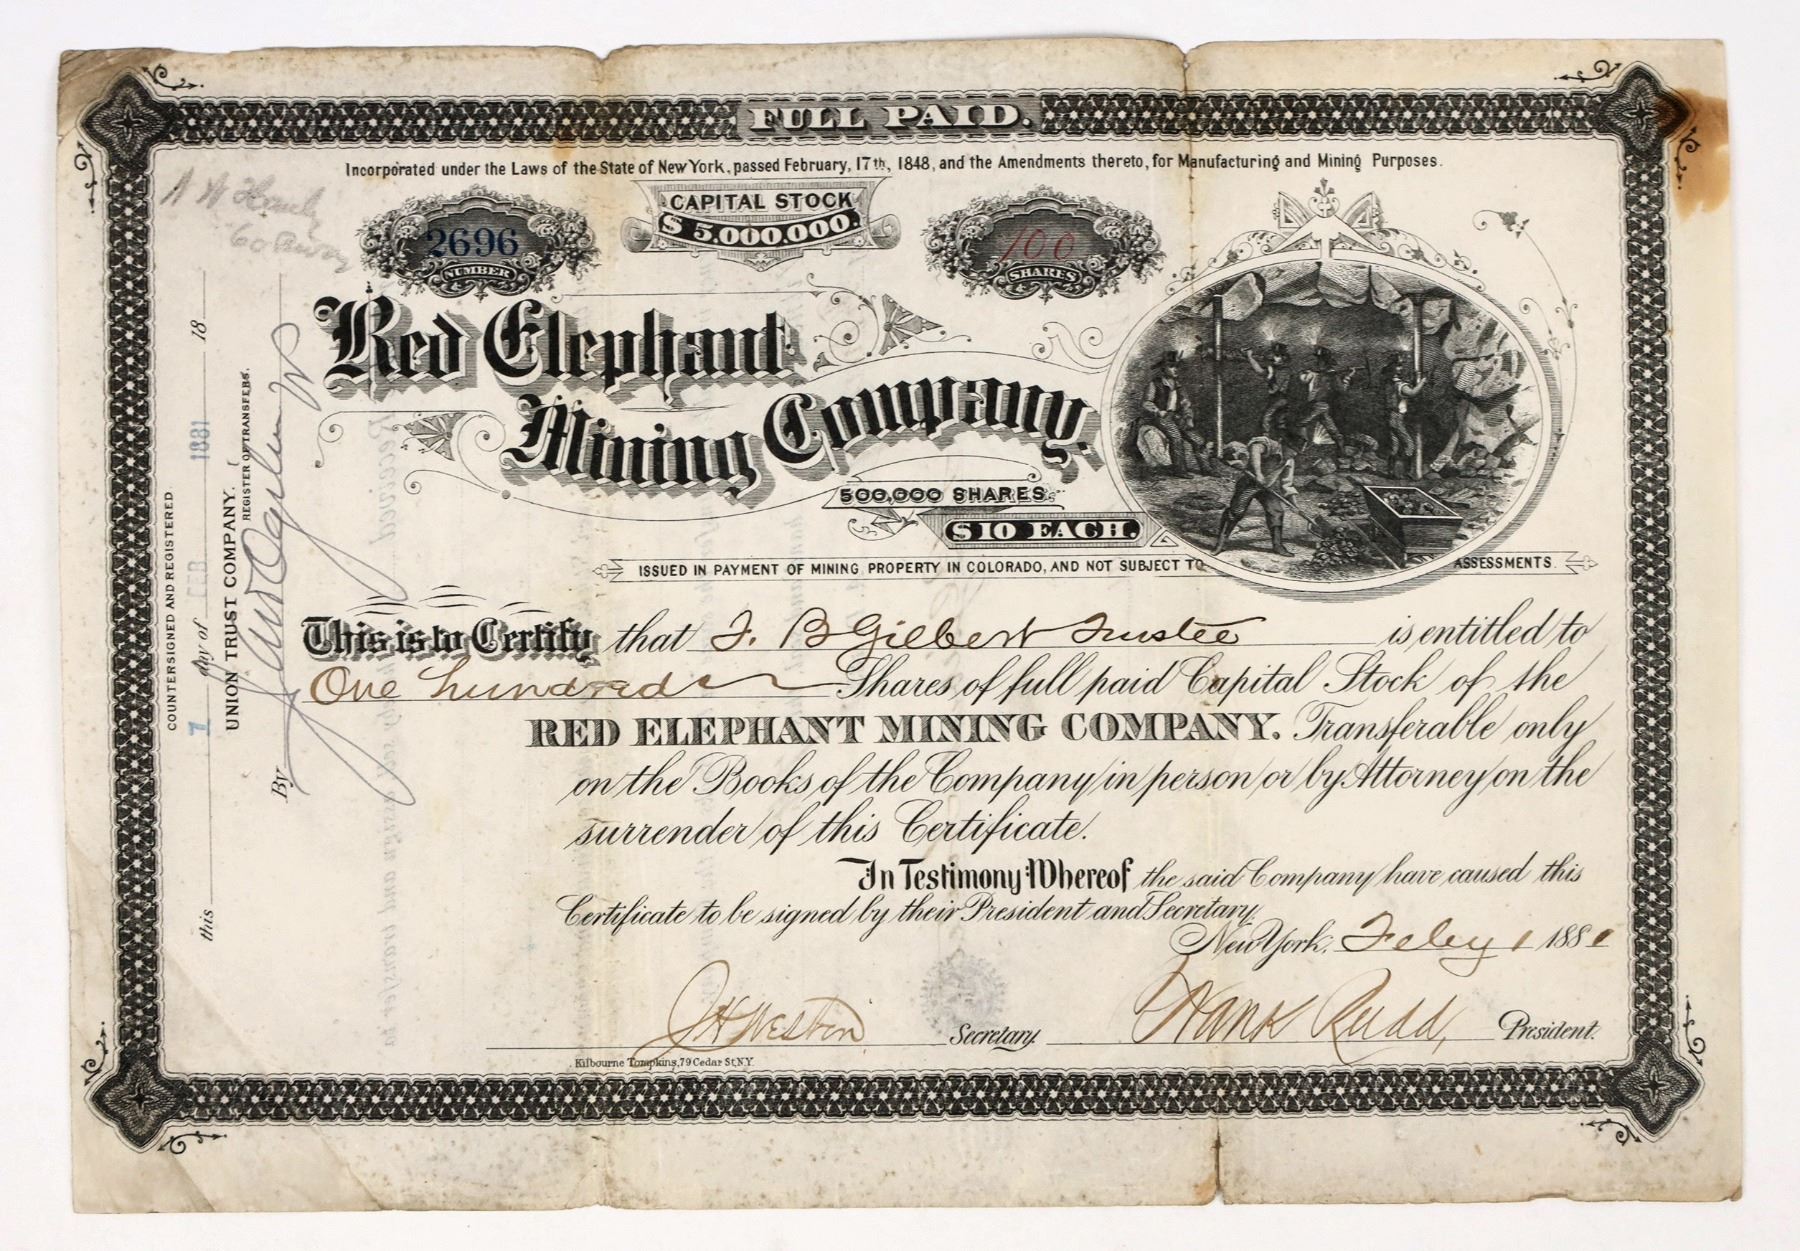 FULL PAID.
Incorporated under the Laws of the State of New York, passed February, 17th, 1848, and the Amendments thereto, for Manufacturing and Mining Purposes.
2696
NUMBER
CAPITAL STOCK
$5.000,000.
100
SHARES
Red Elephant
Mining Company.
500,000 SHARES.
$10 EACH.
ISSUED IN PAYMENT OF MINING PROPERTY IN COLORADO, AND NOT SUBJECT TO ASSESSMENTS.
This is to Certify that F. B Gilbert Trustee is entitled to
One hundred Shares of full paid Capital Stock of the
RED ELEPHANT MINING COMPANY. Transferable only
on the Books of the Company in person or by Attorney on the
surrender of this Certificate.
In Testimony Whereof the said Company have caused this
Certificate to be signed by their President and Secretary.
New York, Feby 1 1881
J H Weston Secretary. Frank Rudd, President.
Kilbourne Tompkins, 79 Cedar St. N.Y.
COUNTERSIGNED AND REGISTERED
this 1 day of FEB 1881 18
UNION TRUST COMPANY.
REGISTER OF TRANSFERS.
By